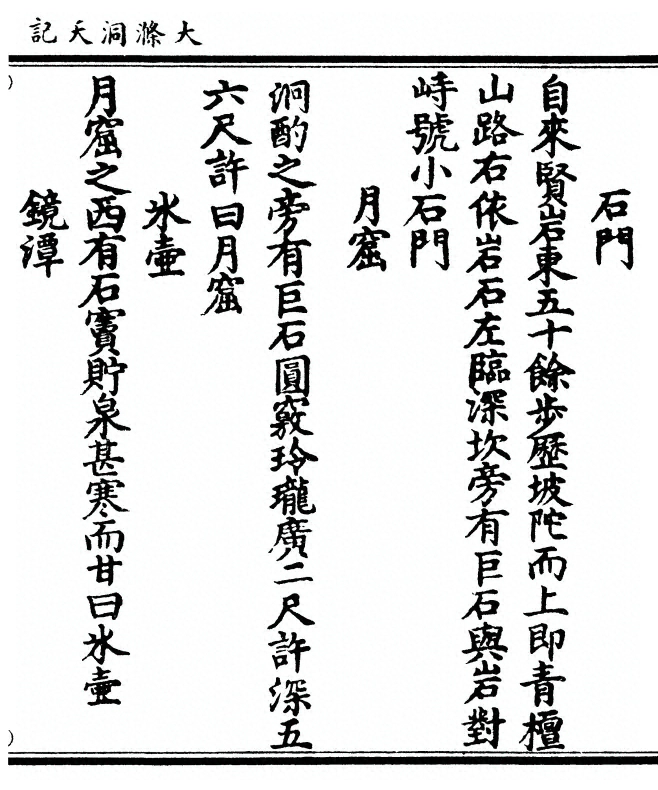 大滌洞天記
石門
自來賢岩東五十餘步歷坡陀而上即青檀
山路右依岩石左臨深坎旁有巨石與岩對
峙號小石門
月窟
泂酌之旁有巨石圓竅玲瓏廣二尺許深五
六尺許曰月窟
氷壺
月窟之西有石竇貯泉甚寒而甘曰氷壺
鏡潭